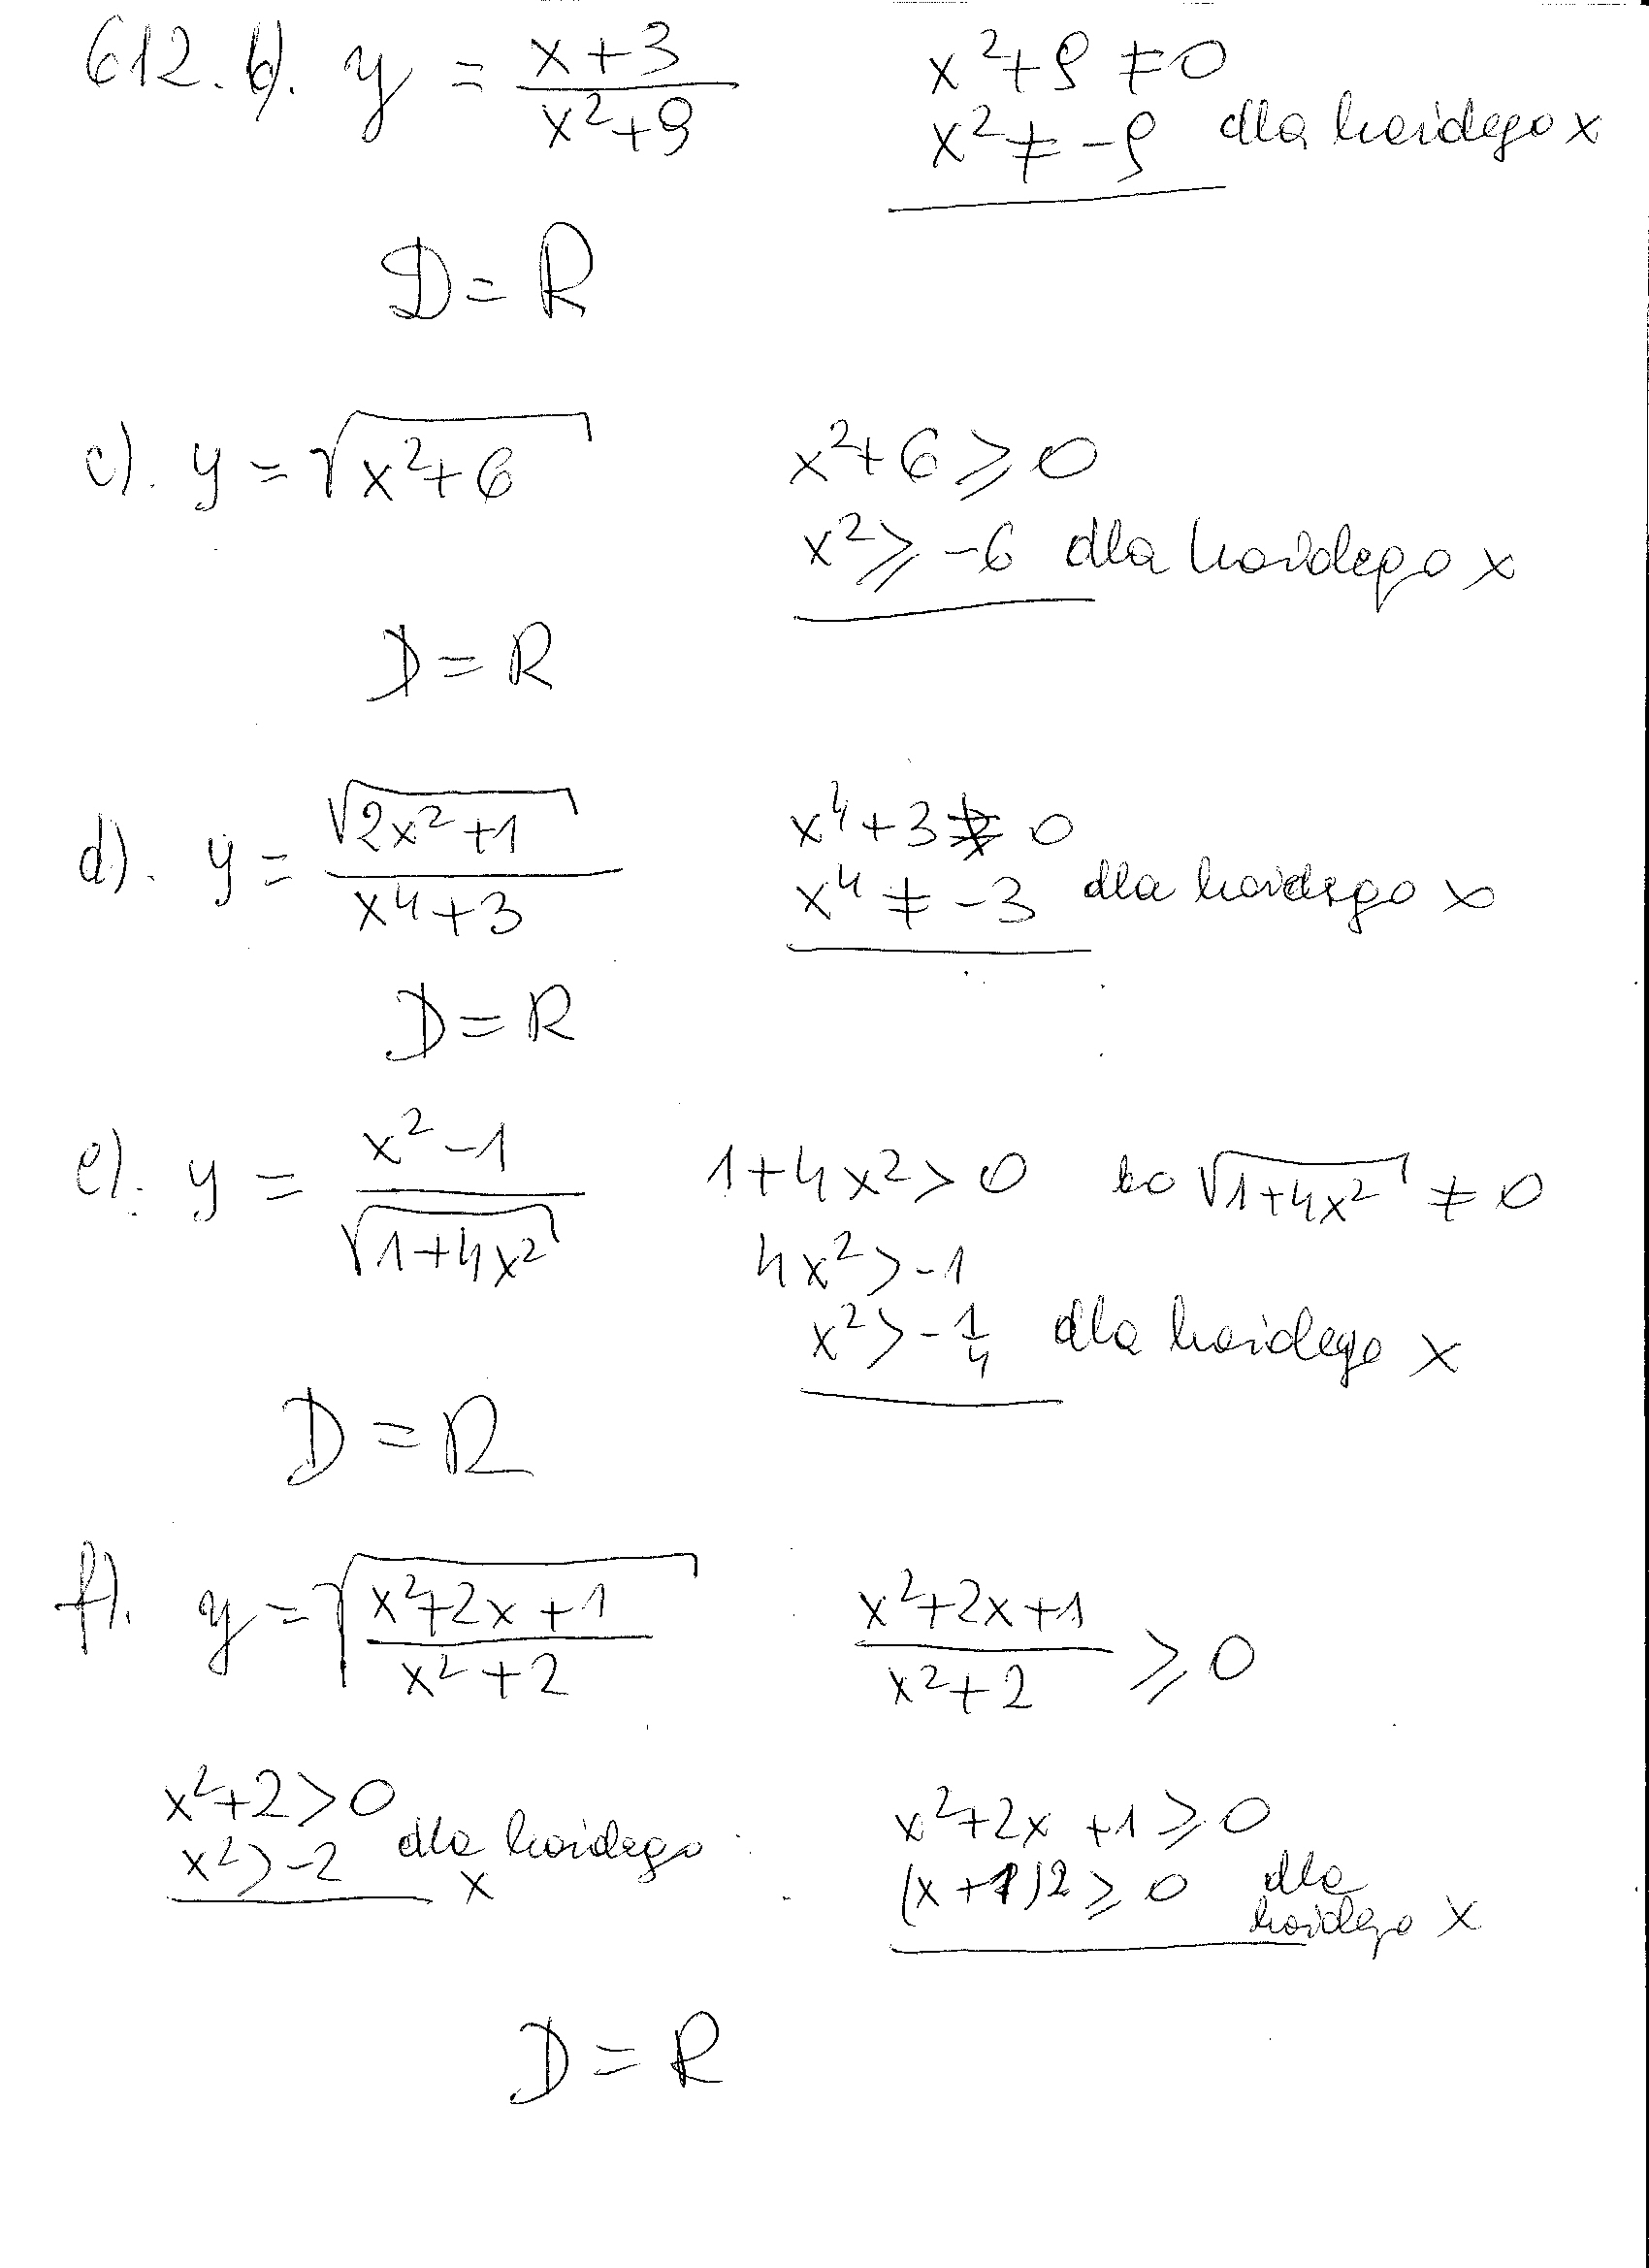 612. b). y = (x+3)/(x²+9) x²+9 ≠ 0
x² ≠ -9 dla każdego x
D = R
c). y = √(x²+6) x²+6 ⩾ 0
x² ⩾ -6 dla każdego x
D = R
d). y = √(2x²+1)/(x⁴+3) x⁴+3 ≠ 0
x⁴ ≠ -3 dla każdego x
D = R
e). y = (x²-1)/√(1+4x²) 1+4x² > 0 bo √(1+4x²) ≠ 0
4x² > -1
x² > -1/4 dla każdego x
D = R
f). y = √((x²+2x+1)/(x²+2)) (x²+2x+1)/(x²+2) ⩾ 0
x²+2 > 0
x² > -2 dla każdego x
x²+2x+1 ⩾ 0
(x+1)2 ⩾ 0 dla każdego x
D = R